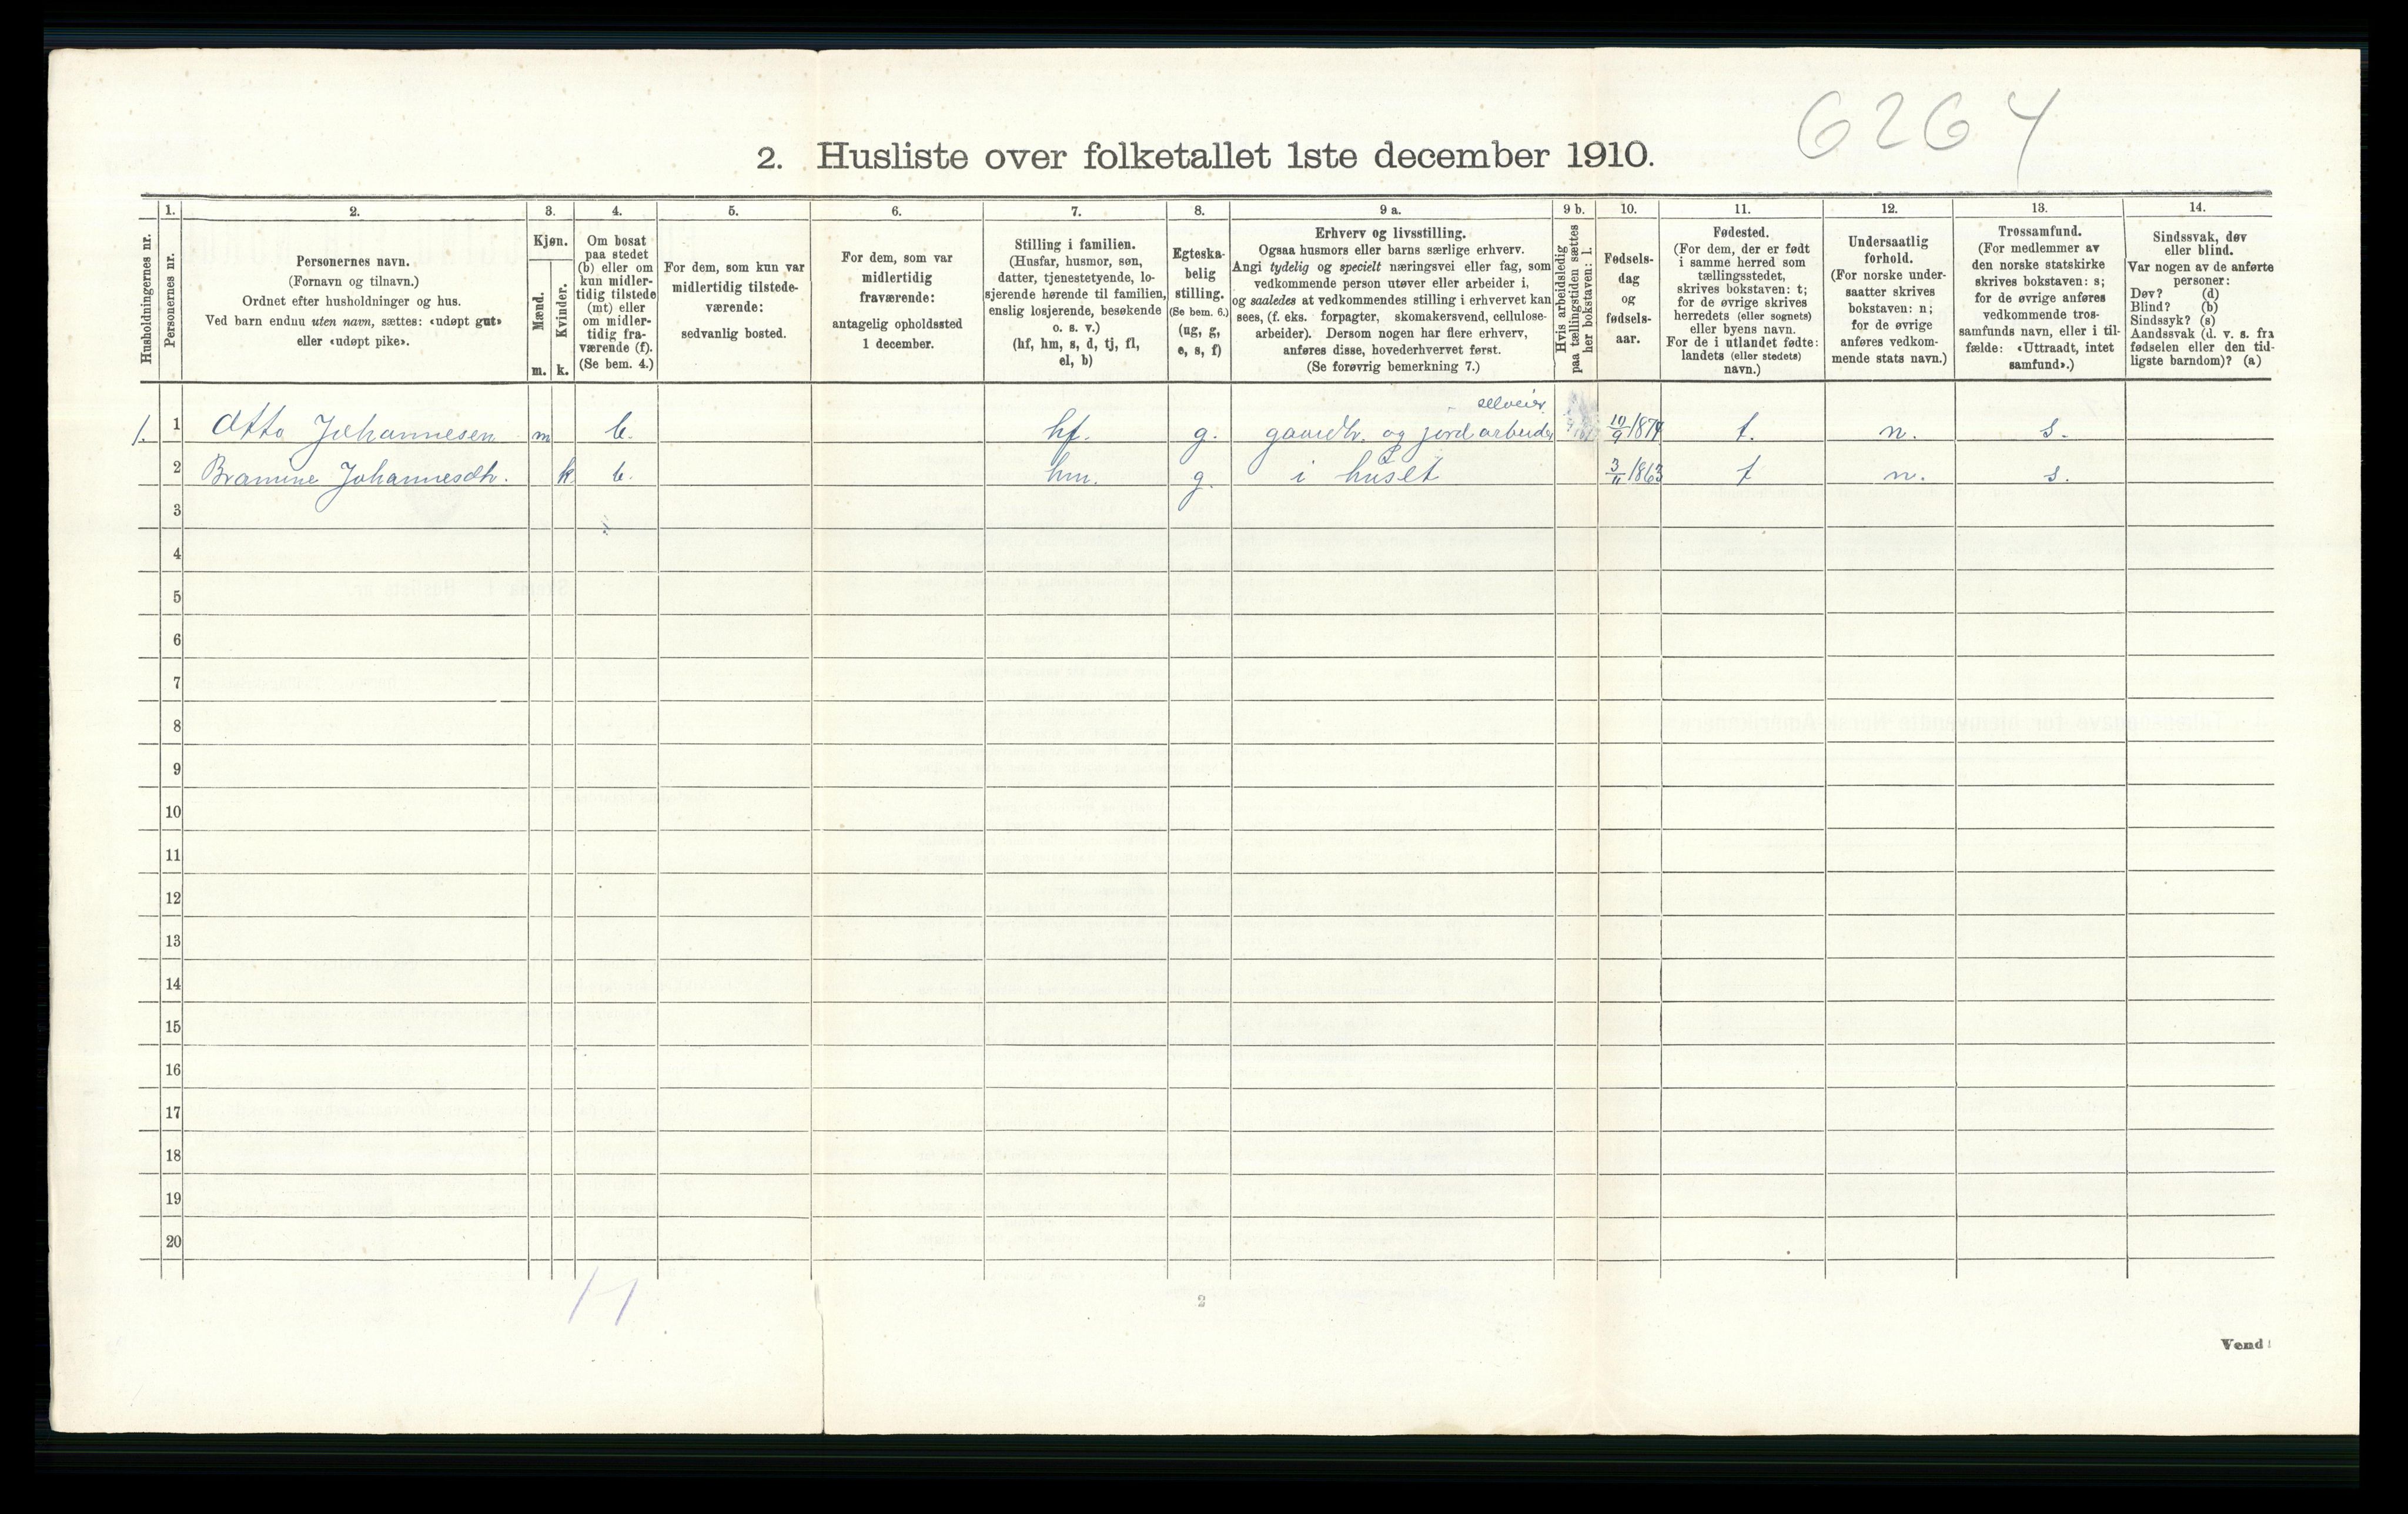 6264
2. Husliste over folketallet 1ste december 1910.
Husholdningernes nr.
1.
Personernes nr.
2.
Personernes navn.
(Fornavn og tilnavn.)
Ordnet efter husholdninger og hus.
Ved barn endnu uten navn, sættes: «udøpt gut»
eller «udøpt pike».
3.
Kjøn.
Mænd.
Kvinder.
m. k.
4.
Om bosat
paa stedet
(b) eller om
kun midler-
tidig tilstede
(mt) eller
om midler-
tidig fra-
værende (f).
(Se bem. 4.)
5.
For dem, som kun var
midlertidig tilstede-
værende:
sedvanlig bosted.
6.
For dem, som var
midlertidig
fraværende:
antagelig opholdssted
1 december.
7.
Stilling i familien.
(Husfar, husmor, søn,
datter, tjenestetyende, lo-
sjerende hørende til familien,
enslig losjerende, besøkende
o. s. v.)
(hf, hm, s, d, tj, fl,
el, b)
8.
Egteska-
belig
stilling.
(Se bem. 6.)
(ug, g,
e, s, f)
9 a.
Erhverv og livsstilling.
Ogsaa husmors eller barns særlige erhverv.
Angi tydelig og specielt næringsvei eller fag, som
vedkommende person utøver eller arbeider i,
og saaledes at vedkommendes stilling i erhvervet kan
sees, (f. eks. forpagter, skomakersvend, cellulose-
arbeider). Dersom nogen har flere erhverv,
anføres disse, hovederhvervet først.
(Se forøvrig bemerkning 7.)
9 b.
Hvis arbeidsledig
paa tællingstiden sættes
her bokstaven: l.
10.
Fødsels-
dag
og
fødsels-
aar.
11.
Fødested.
(For dem, der er født
i samme herred som
tællingsstedet,
skrives bokstaven: t;
for de øvrige skrives
herredets (eller sognets)
eller byens navn.
For de i utlandet fødte:
landets (eller stedets)
navn.)
12.
Undersaatlig
forhold.
(For norske under-
saatter skrives
bokstaven: n;
for de øvrige
anføres vedkom-
mende stats navn.)
13.
Trossamfund.
(For medlemmer av
den norske statskirke
skrives bokstaven: s;
for de øvrige anføres
vedkommende tros-
samfunds navn, eller i til-
fælde: «Uttraadt, intet
samfund».)
14.
Sindssvak, døv
eller blind.
Var nogen av de anførte
personer:
Døv? (d)
Blind? (b)
Sindssyk? (s)
Aandssvak (d. v. s. fra
fødselen eller den tid-
ligste barndom)? (a)
selveier
1. 1 Otto Johannesen m b. hf. g. gaardbr. og jordarbeider 10/9 1874 t. n. s.
2 Bramine Johannesdtr. k b. hm. g. i huset 3/11 1863 t n. s.
3
4
5
6
7
8
9
10
11
12
13
14
15
16
17
18
19
20
2
Vend!